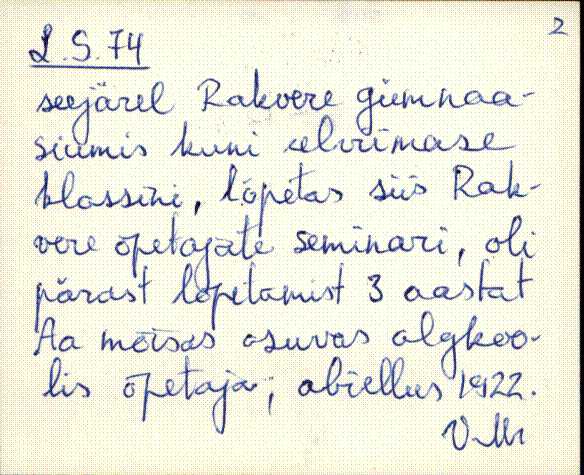 2
L.S. 74
seejärel Rakvere gümnaa-
siumis kuni eelviimase
klassini, lõpetas siis Rak-
vere õpetajate seminari, oli
pärast lõpetamist 3 aastat
Aa mõisas asuvas algkoo-
lis õpetaja; abiellus 1922.